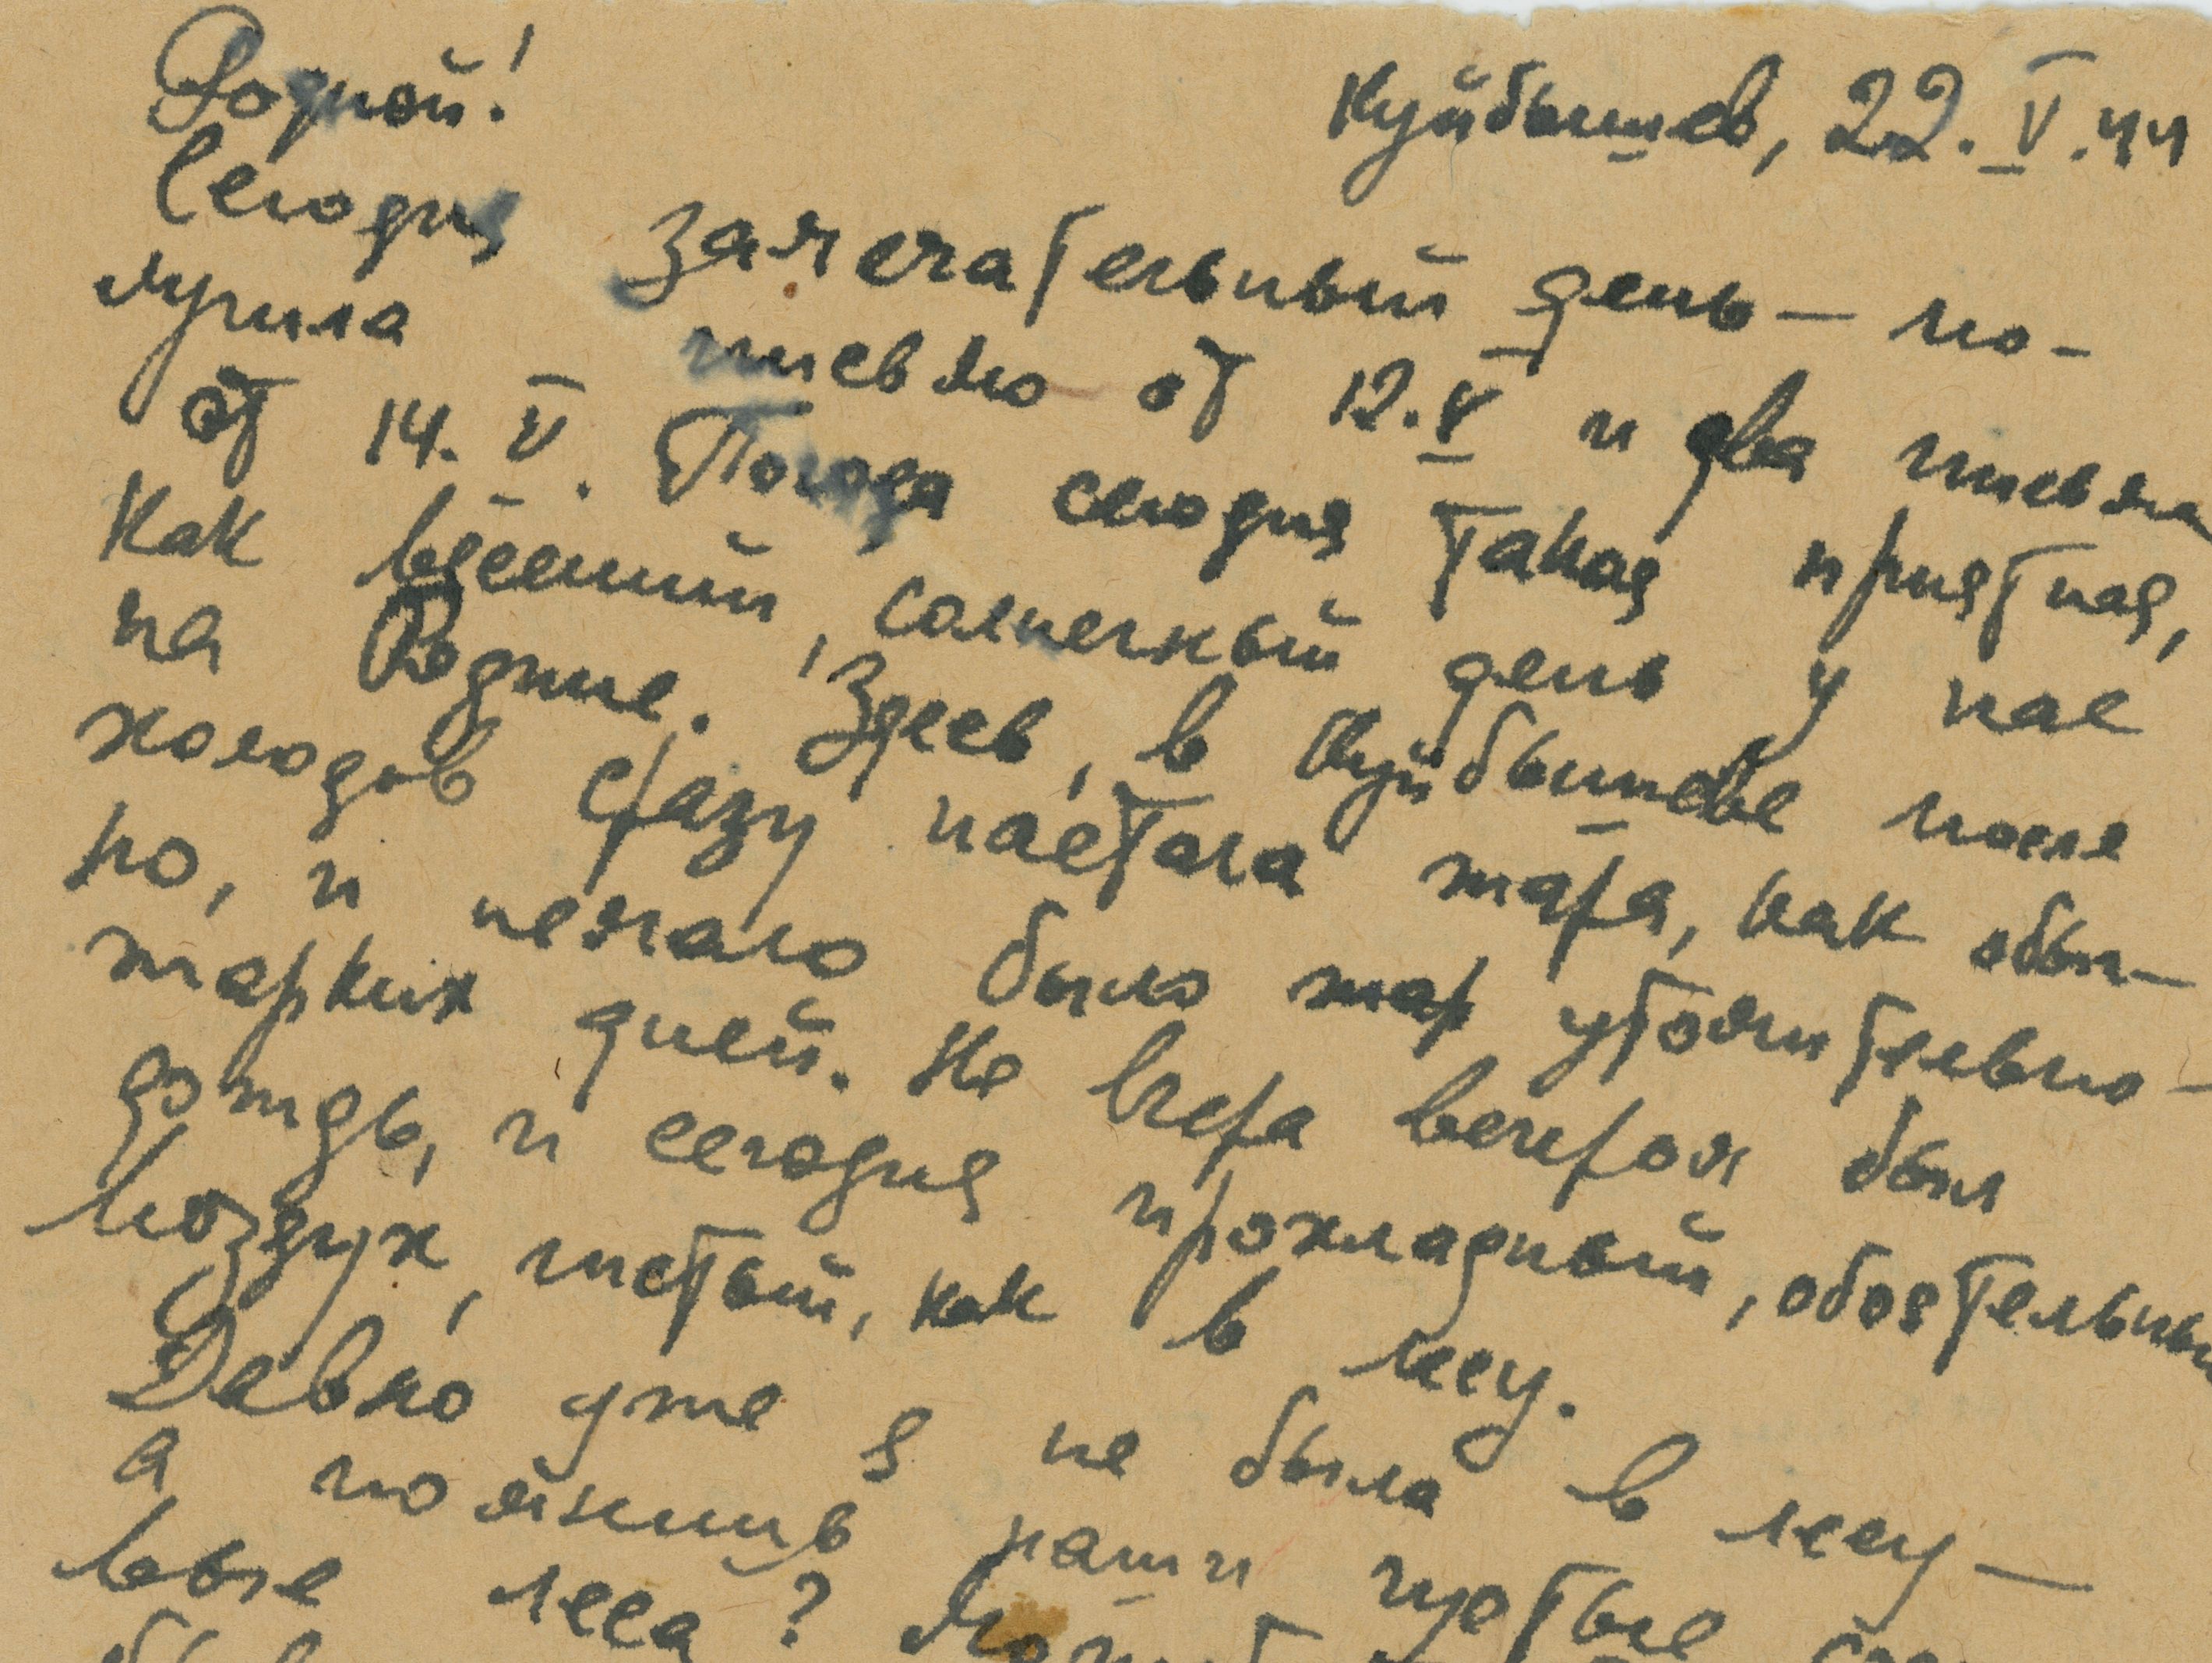 Родной!
Куйбышев, 22.V.44
Сегодня замечательный день – по-
лучила письмо от 12.V и два письма
от 14.V. Погода сегодня такая приятная,
как весенний, солнечный день у нас
на Родине. Здесь, в Куйбышеве после
холодов сразу настала жара, как обыч-
но, и немало было жар утомительно-
жарких дней. Но вчера вечером был
дождь, и сегодня прохладный, обоятельный
воздух, чистый, как в лесу.
Давно уже я не была в лесу –
а помнишь наши густые
вые леса?